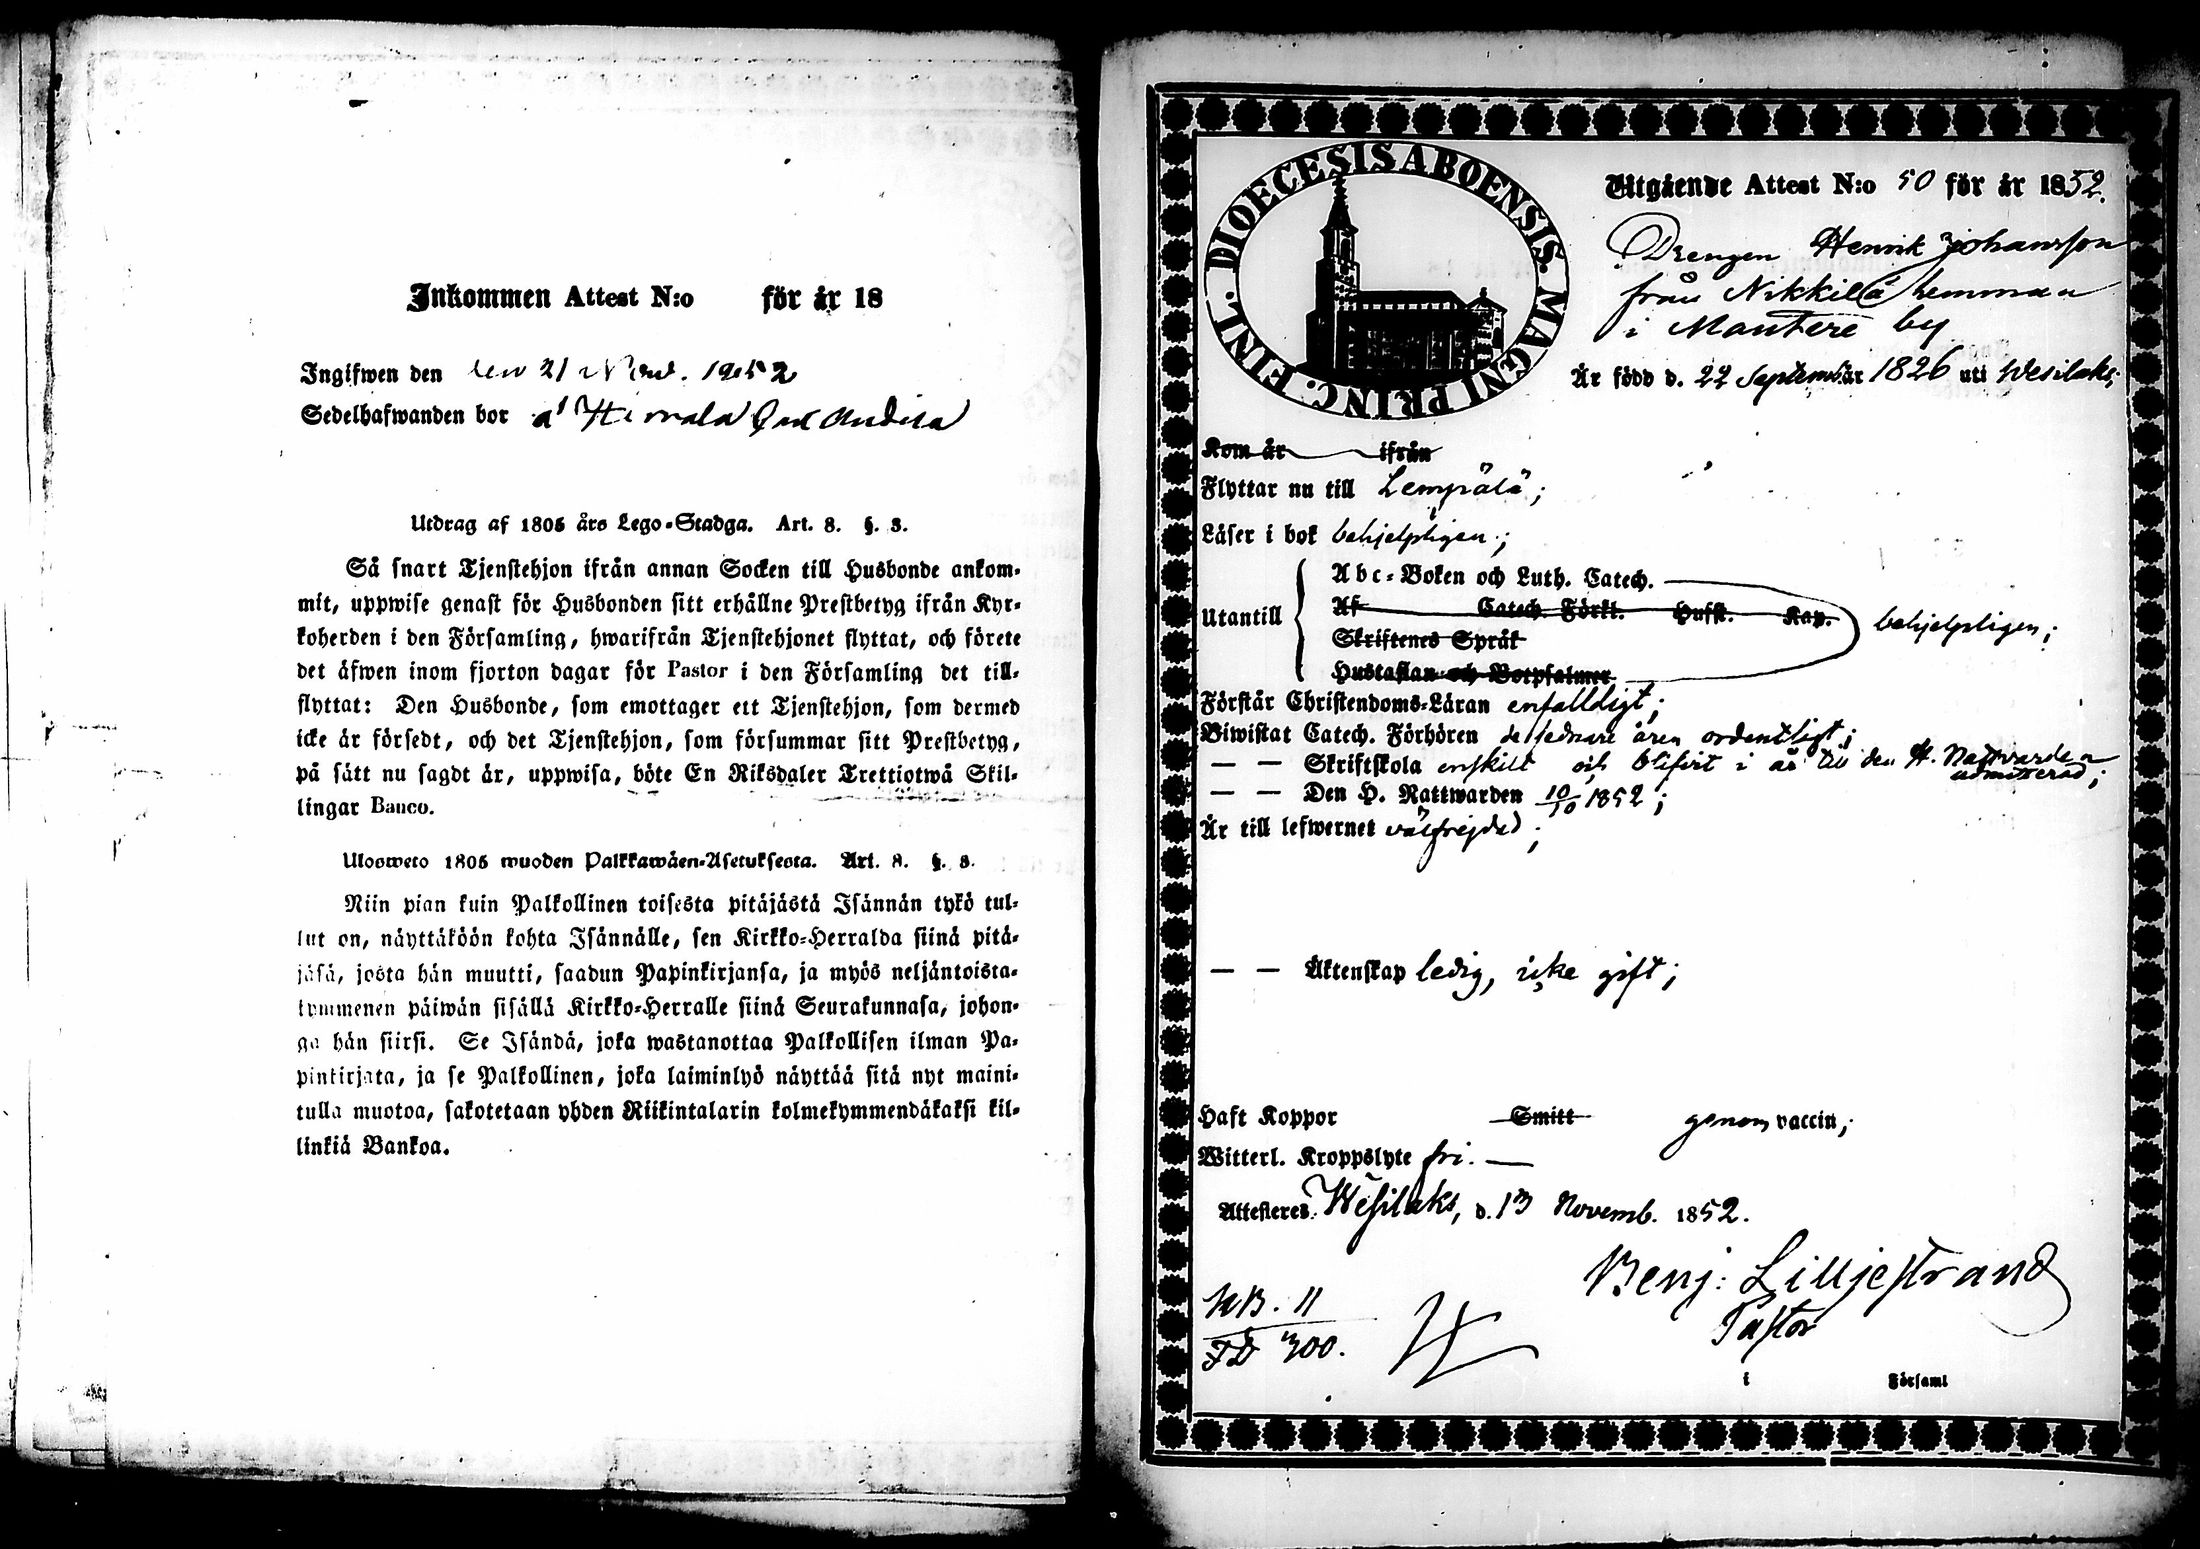 Inkommen Attest N:o för år 18
Ingifwen den den 21 Nov. 1852
Sedelhafwanden bor å Hirvala
Utdrag af 1805 års Lego-Stadga. Art. 8. §. 3.
Så snart Tjenstehjon ifrån annan Socken till Husbonde ankom-
mit, uppwise genast för Husbonden sitt erhållne Prestbetyg ifrån Kyr-
koherden i den Församling, hwarifrån Tjenstehjonet flyttat, och förete
det äfwen inom fjorton dagar för Pastor i den Församling det till-
flyttat: Den Husbonde, som emottager ett Tjenstehjon, som dermed
icke är försedt, och det Tjenstehjon, som försummar sitt Prestbetyg,
på sätt nu sagdt är, uppwisa, böte En Riksdaler Trettiotwå Skil-
lingar Banco.
Ulosweto 1805 wuoden Palkkawäen-Asetuksesta. Art. 8. §. 3.
Niin pian kuin Palkollinen toisesta pitäjästä Isännän tykö tul-
lut on, näyttäköön kohta Isännälle, sen Kirkko-Herralda siinä pitä-
jäsä, josta hän muutti, saadun Papinkirjansa, ja myös neljäntoista-
kymmenen päiwän sisällä Kirkko-Herralle siinä Seurakunnasa, johon-
ga hän siirsi. Se Isändä, joka wastanottaa Palkollisen ilman Pa-
pinkirjata, ja se Palkollinen, joka laiminlyö näyttää sitä nyt maini-
tulla muotoa, sakotetaan yhden Riikintalarin kolmekymmendäkaksi kil-
linkiä Bankoa.
DIOECESIS ABOENSIS. MAGNI PRINC: FINL.
Utgående Attest N:o 50 för år 1852.
Drengen Henrik Johansson
från Nikkilä hemman
i Mantere by
Är född d. 22 September år 1826 uti Wesilaks;
Kom år ifrån
Flyttar nu till Lempälä;
Läser i bok behjelpligen;
Utantill
Abc-Boken och Luth. Catech.
Af Catech. Förkl. Hufst. Kap.
Skriftenes Språk
Hustaflan och Botpsalmer
behjelpligen;
Förstår Christendoms-Läran enfalldigt;
Biwistat Catech. Förhören de sednare åren ordentligt;
— — Skriftskola enskilt och blifvit i år till den H. Nattvarden
admitterad;
— — Den H. Nattwarden 10/10 1852;
Är till lefwernet välfrejdad;
— — Äktenskap ledig, icke gift;
Haft Koppor Smitt genom vaccin;
Witterl. Kroppslyte fri. —
Attesteres. Wesilaks, d. 13 Novemb. 1852.
Benj: Lilljestrand
Pastor
i Församl
NB. 11
FD 300.